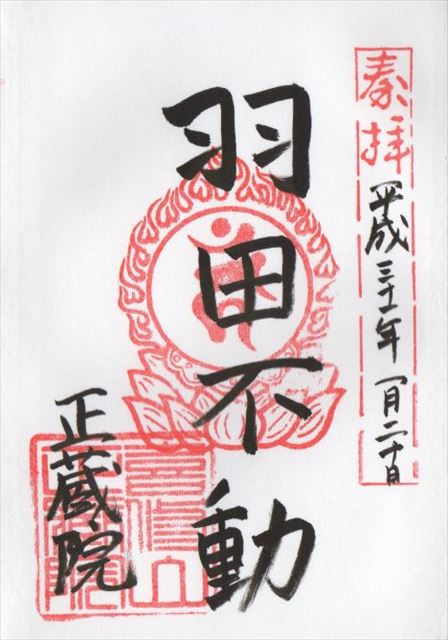 奉拝
平成三十一年 一月二十日
羽田不動
正蔵院